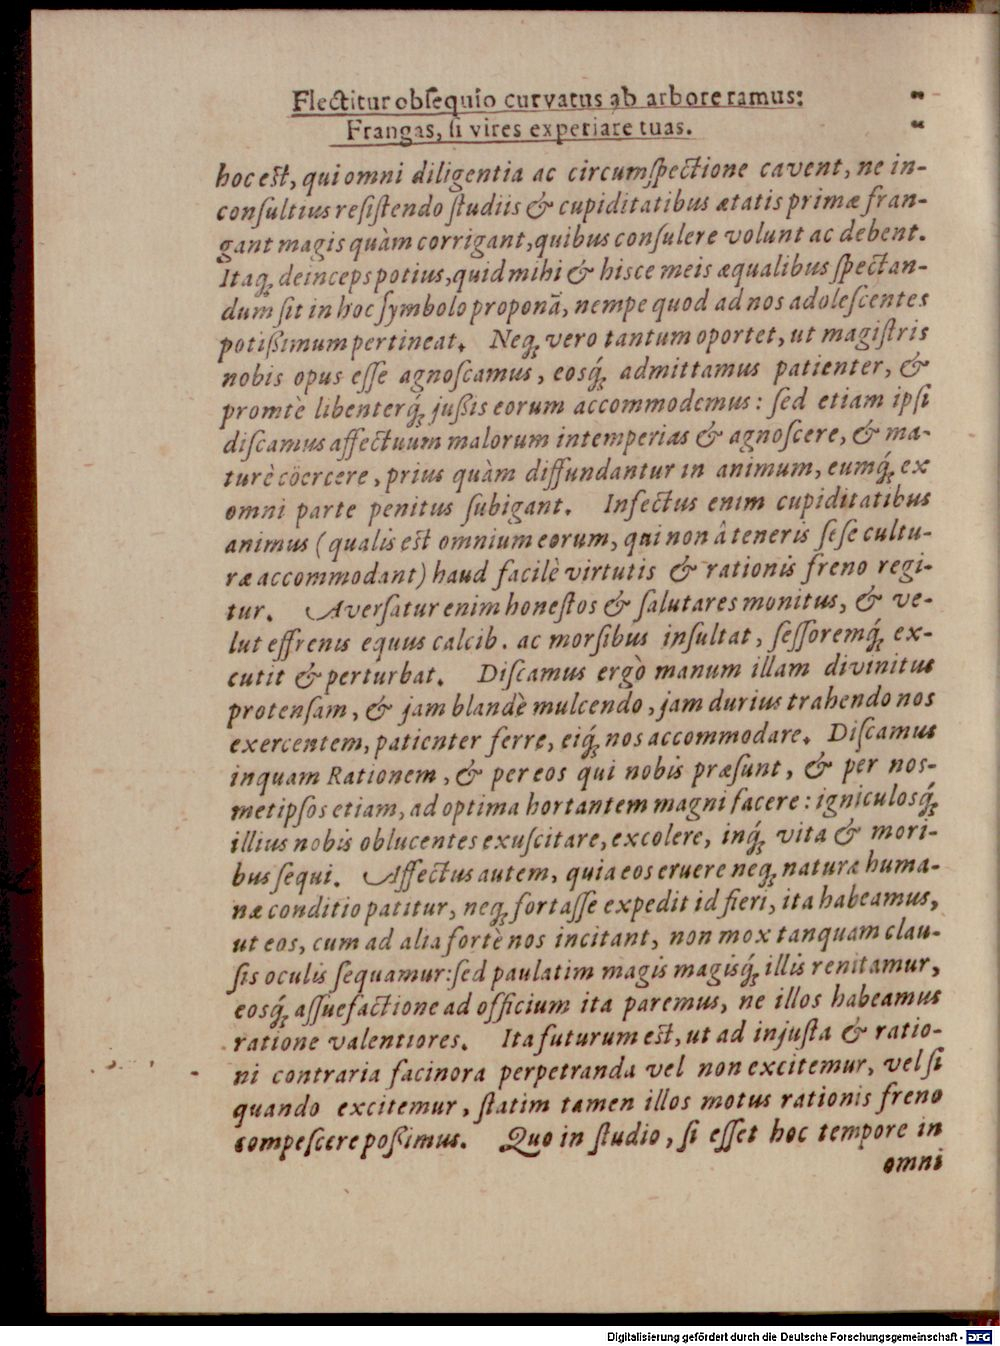 Flectitur obſequio curvatus ab arbore ramus:
Frangas, ſi vires experiare tuas.
hoc eſt, qui omni diligentia ac circumſpectione cavent, ne in-
conſultius reſiſtendo ſtudiis & cupiditatibus ætatis primæ fran-
gant magis quàm corrigant, quibus conſulere volunt ac debent.
Itaq́; deinceps potius, quid mihi & hisce meis æqualibus ſpectan-
dum ſit in hoc ſymbolo proponā, nempe quod ad nos adoleſcentes
potißimum pertineat. Neq; vero tantum oportet, ut magiſtris
nobis opus eſſe agnoſcamus, eosq́; admittamus patienter, &
promtè libenterq́; jußis eorum accommodemus: ſed etiam ipſi
diſcamus affectuum malorum intemperias & agnoſcere, & ma-
turè cöercere, prius quàm diffundantur in animum, eumq́; ex
omni parte penitus ſubigant. Infectus enim cupiditatibus
animus (qualis eſt omnium eorum, qui non â teneris ſeſe cultu-
ræ accommodant) haud facilè virtutis & rationis freno regi-
tur. Averſatur enim honeſtos & ſalutares monitus, & ve-
lut effrenis equus calcib. ac morſibus inſultat, ſeſſoremq́; ex-
cutit & perturbat. Diſcamus ergò manum illam divinitus
protenſam, & jam blandè mulcendo, jam durius trahendo nos
exercentem, patienter ferre, eiq́; nos accommodare. Diſcamus
inquam Rationem, & per eos qui nobis præſunt, & per nos-
metipſos etiam, ad optima hortantem magni facere: igniculosq́;
illius nobis oblucentes exuſcitare, excolere, inq́; vita & mori-
bus ſequi. Affectus autem, quia eos eruere neq; naturæ huma-
næ conditio patitur, neq; fortaſſe expedit id fieri, ita habeamus,
ut eos, cum ad alia fortè nos incitant, non mox tanquam clau-
ſis oculis ſequamur: ſed paulatim magis magisq́; illis renitamur,
eosq́; aſſuefactione ad officium ita paremus, ne illos habeamus
ratione valentiores. Ita futurum eſt, ut ad injuſta & ratio-
ni contraria facinora perpetranda vel non excitemur, vel ſi
quando excitemur, ſtatim tamen illos motus rationis freno
compeſcere poßimus. Quo in ſtudio, ſi eſſet hoc tempore in
omni
Digitalisierung gefördert durch die Deutsche Forschungsgemeinschaft - DFG